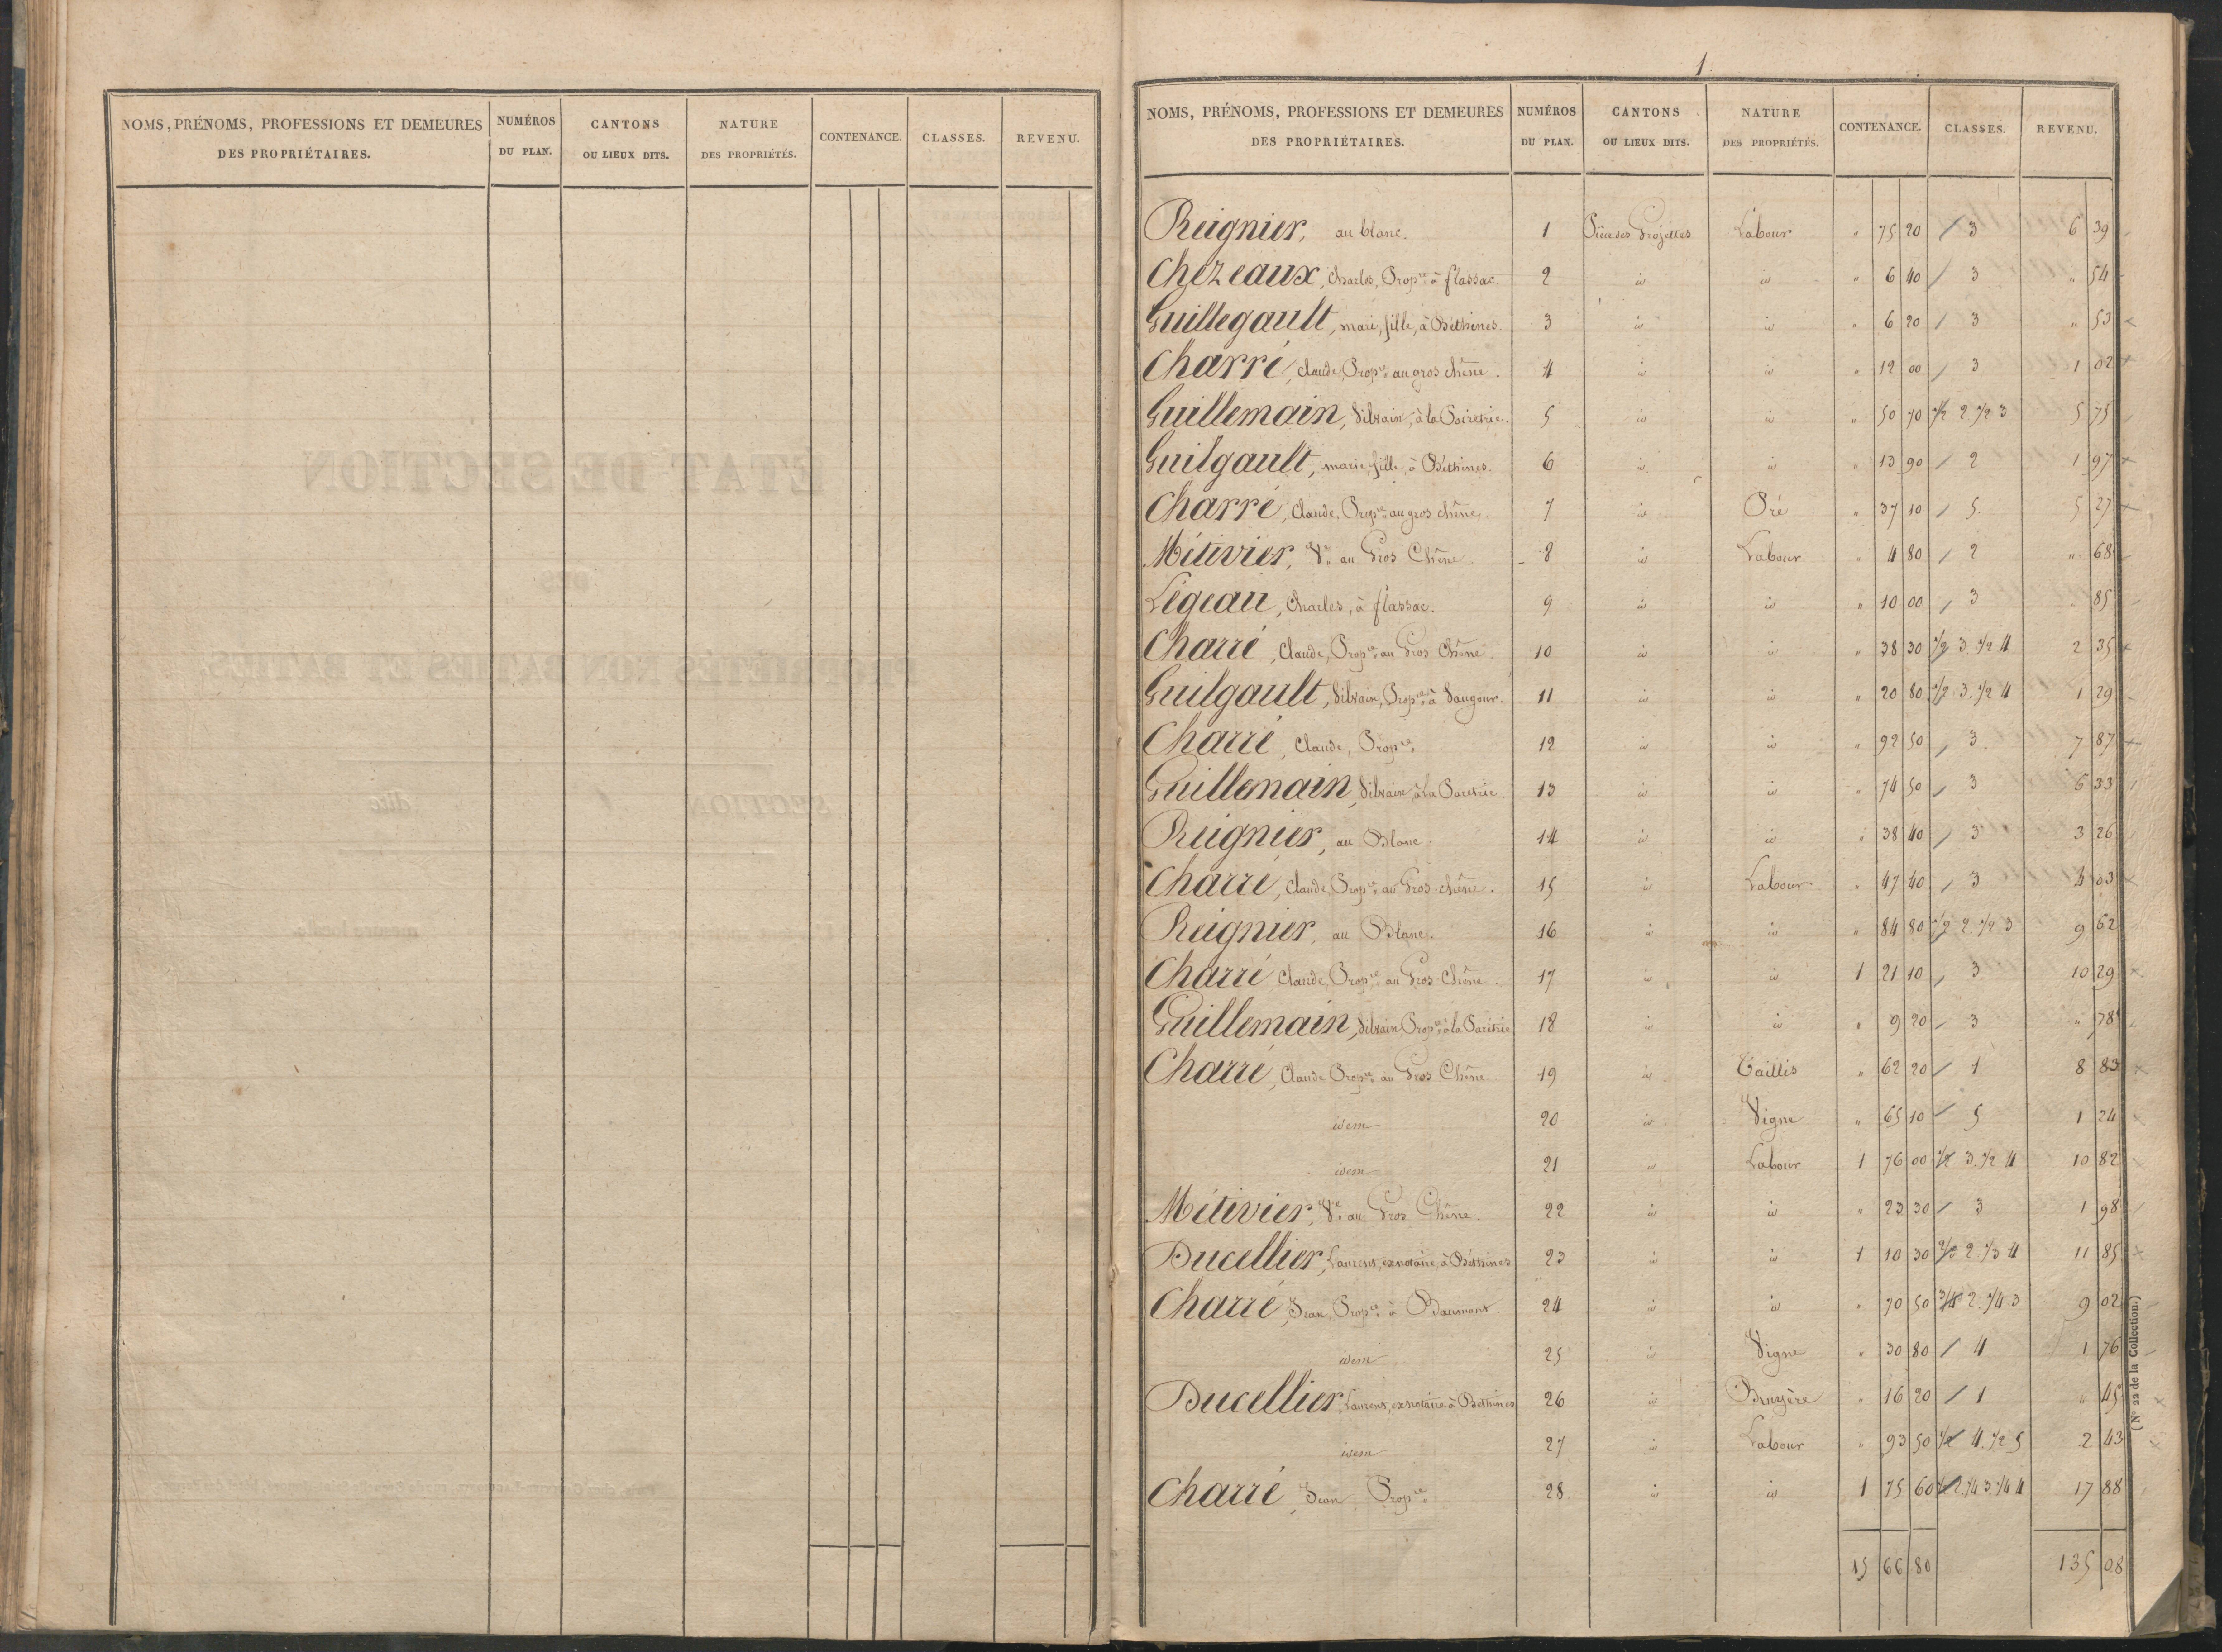 NOMS, PRÉNOMS, PROFESSIONS ET DEMEURES DES PROPRIÉTAIRES. NUMÉROS DU PLAN. CANTONS OU LIEUX DITS. NATURE DES PROPRIÉTÉS. CONTENANCE. CLASSES. REVENU.
1.
NOMS, PRÉNOMS, PROFESSIONS ET DEMEURES DES PROPRIÉTAIRES. NUMÉROS DU PLAN. CANTONS OU LIEUX DITS. NATURE DES PROPRIÉTÉS. CONTENANCE. CLASSES. REVENU.
Reignier, au blanc. 1 Labour " 75 20 / 3 6 39
Chezeaux, Charles, Prop.re à flassac. 2 id id " 6 40 / 3 " 54
Guillegault, marie, fille, à Béthines. 3 id id " 6 20 / 3 " 53
Charré, Claude, Prop.re au gros chêne. 4 id id " 12 00 / 3 1 02
Guillemain, Silvain, à la 5 id id " 50 70 1/2 2. 1/2 3 5 75
Guilgault, marie, fille, à Béthines. 6 id id " 13 90 / 2 1 97
Charré, Claude, Prop.re au gros chêne. 7 id Pré " 37 10 / 5 5 27
Métivier, Ve au Gros Chêne. 8 id Labour " 4 80 / 2 " 68
Légeau, Charles, à flassac. 9 id id " 10 00 / 3 " 85
Charré, Claude, Prop.re au Gros Chêne. 10 id id " 38 30 1/2 3. 1/2 4 2 35
Guilgault, Silvain, Prop.re à Vaugour. 11 id id " 20 80 1/2 3. 1/2 4 1 29
Charré, Claude, Prop.re 12 id id " 92 50 / 3 7 87
Guillemain, Silvain, à la 13 id id " 74 50 / 3 6 33
Reignier, au Blanc. 14 id id " 38 40 / 3 3 26
Charré, Claude, Prop.re au Gros chêne. 15 id Labour " 47 40 / 3 4 03
Reignier, au Blanc. 16 id id " 84 80 1/2 2. 1/2 3 9 62
Charré, Claude, Prop.re au Gros Chêne. 17 id id 1 21 10 / 3 10 29
Guillemain, Silvain, Prop.re à la 18 id id " 9 20 / 3 " 78
Charré, Claude, Prop.re au Gros Chêne 19 id Taillis " 62 20 / 1 8 83
idem 20 id Vigne " 65 10 / 5 1 24
idem 21 id Labour 1 76 00 1/2 3. 1/2 4 10 82
Métivier, Ve au Gros Chêne. 22 id id " 23 30 / 3 1 98
Ducellier, Laurent, exnotaire, à Béthines 23 id id 1 10 30 2/3 2. 1/3 4 11 85
Charré, Jean, Prop.re à Baumont. 24 id id " 70 50 3/4 2. 1/4 3 9 02
idem 25 id Vigne " 30 80 / 4 1 76
Ducellier, Laurent, exnotaire à Béthines 26 id Bruyère " 16 20 / 1 " 45
idem 27 id Labour " 93 50 1/2 4. 1/2 5 2 43
Charré, Jean, Prop.re 28 id id 1 75 60 1/2 2. 1/4 3. 1/4 4 17 88
15 66 80 135 08
(N° 22 de la Collection.)